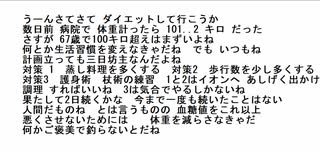 うーんさてさて ダイエットして行こうか
数日前 病院で 体重計ったら 101..2 キロ だった
さすが 67歳で100キロ超えはまずいよね
何とか生活習慣を変えなきゃだね でも いつもね
計画立っても三日坊主なんだよね
対策 1 蒸し料理を多くする 対策2 歩行数を少し多くする
対策3 護身術 杖術の練習 1と2はイオンへ あしげく出かけ
調理 すればいいね 3は気合でやるしかないね
果たして2日続くかな 今まで一度も続いたことはない
人間だものね とは言うものの 血糖値をこれ以上
悪くさせないためには 体重を減らさなきゃだ
何かご褒美で釣らないとだね